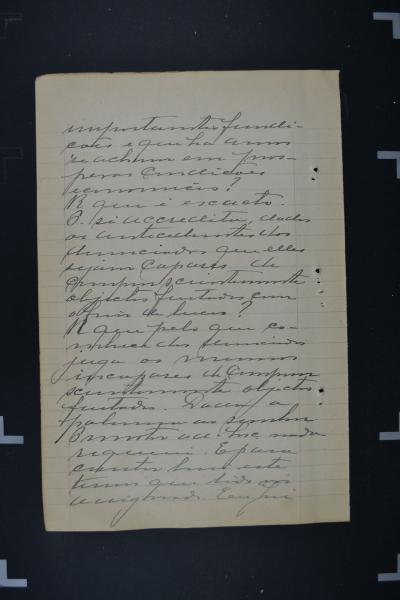 importantes fundi-
ções e que ha annos
se acham em pros-
peras condicões
economicas?
R que é exacto.
P. si accredita, dados
os antecedentes dos
denunciados que elles
sejam capazes de
comprar scientemente
objectos furtados com
o fim de lucro?
R que pelo que co-
nhece dos denunciados
julga os mesmos
incapazes de comprar
scientemente objectos
furtados. Dada a
palavra ao senhor
Promotor
requereu. E para
constar lavro este
termo que lido vai
assignado. Eu